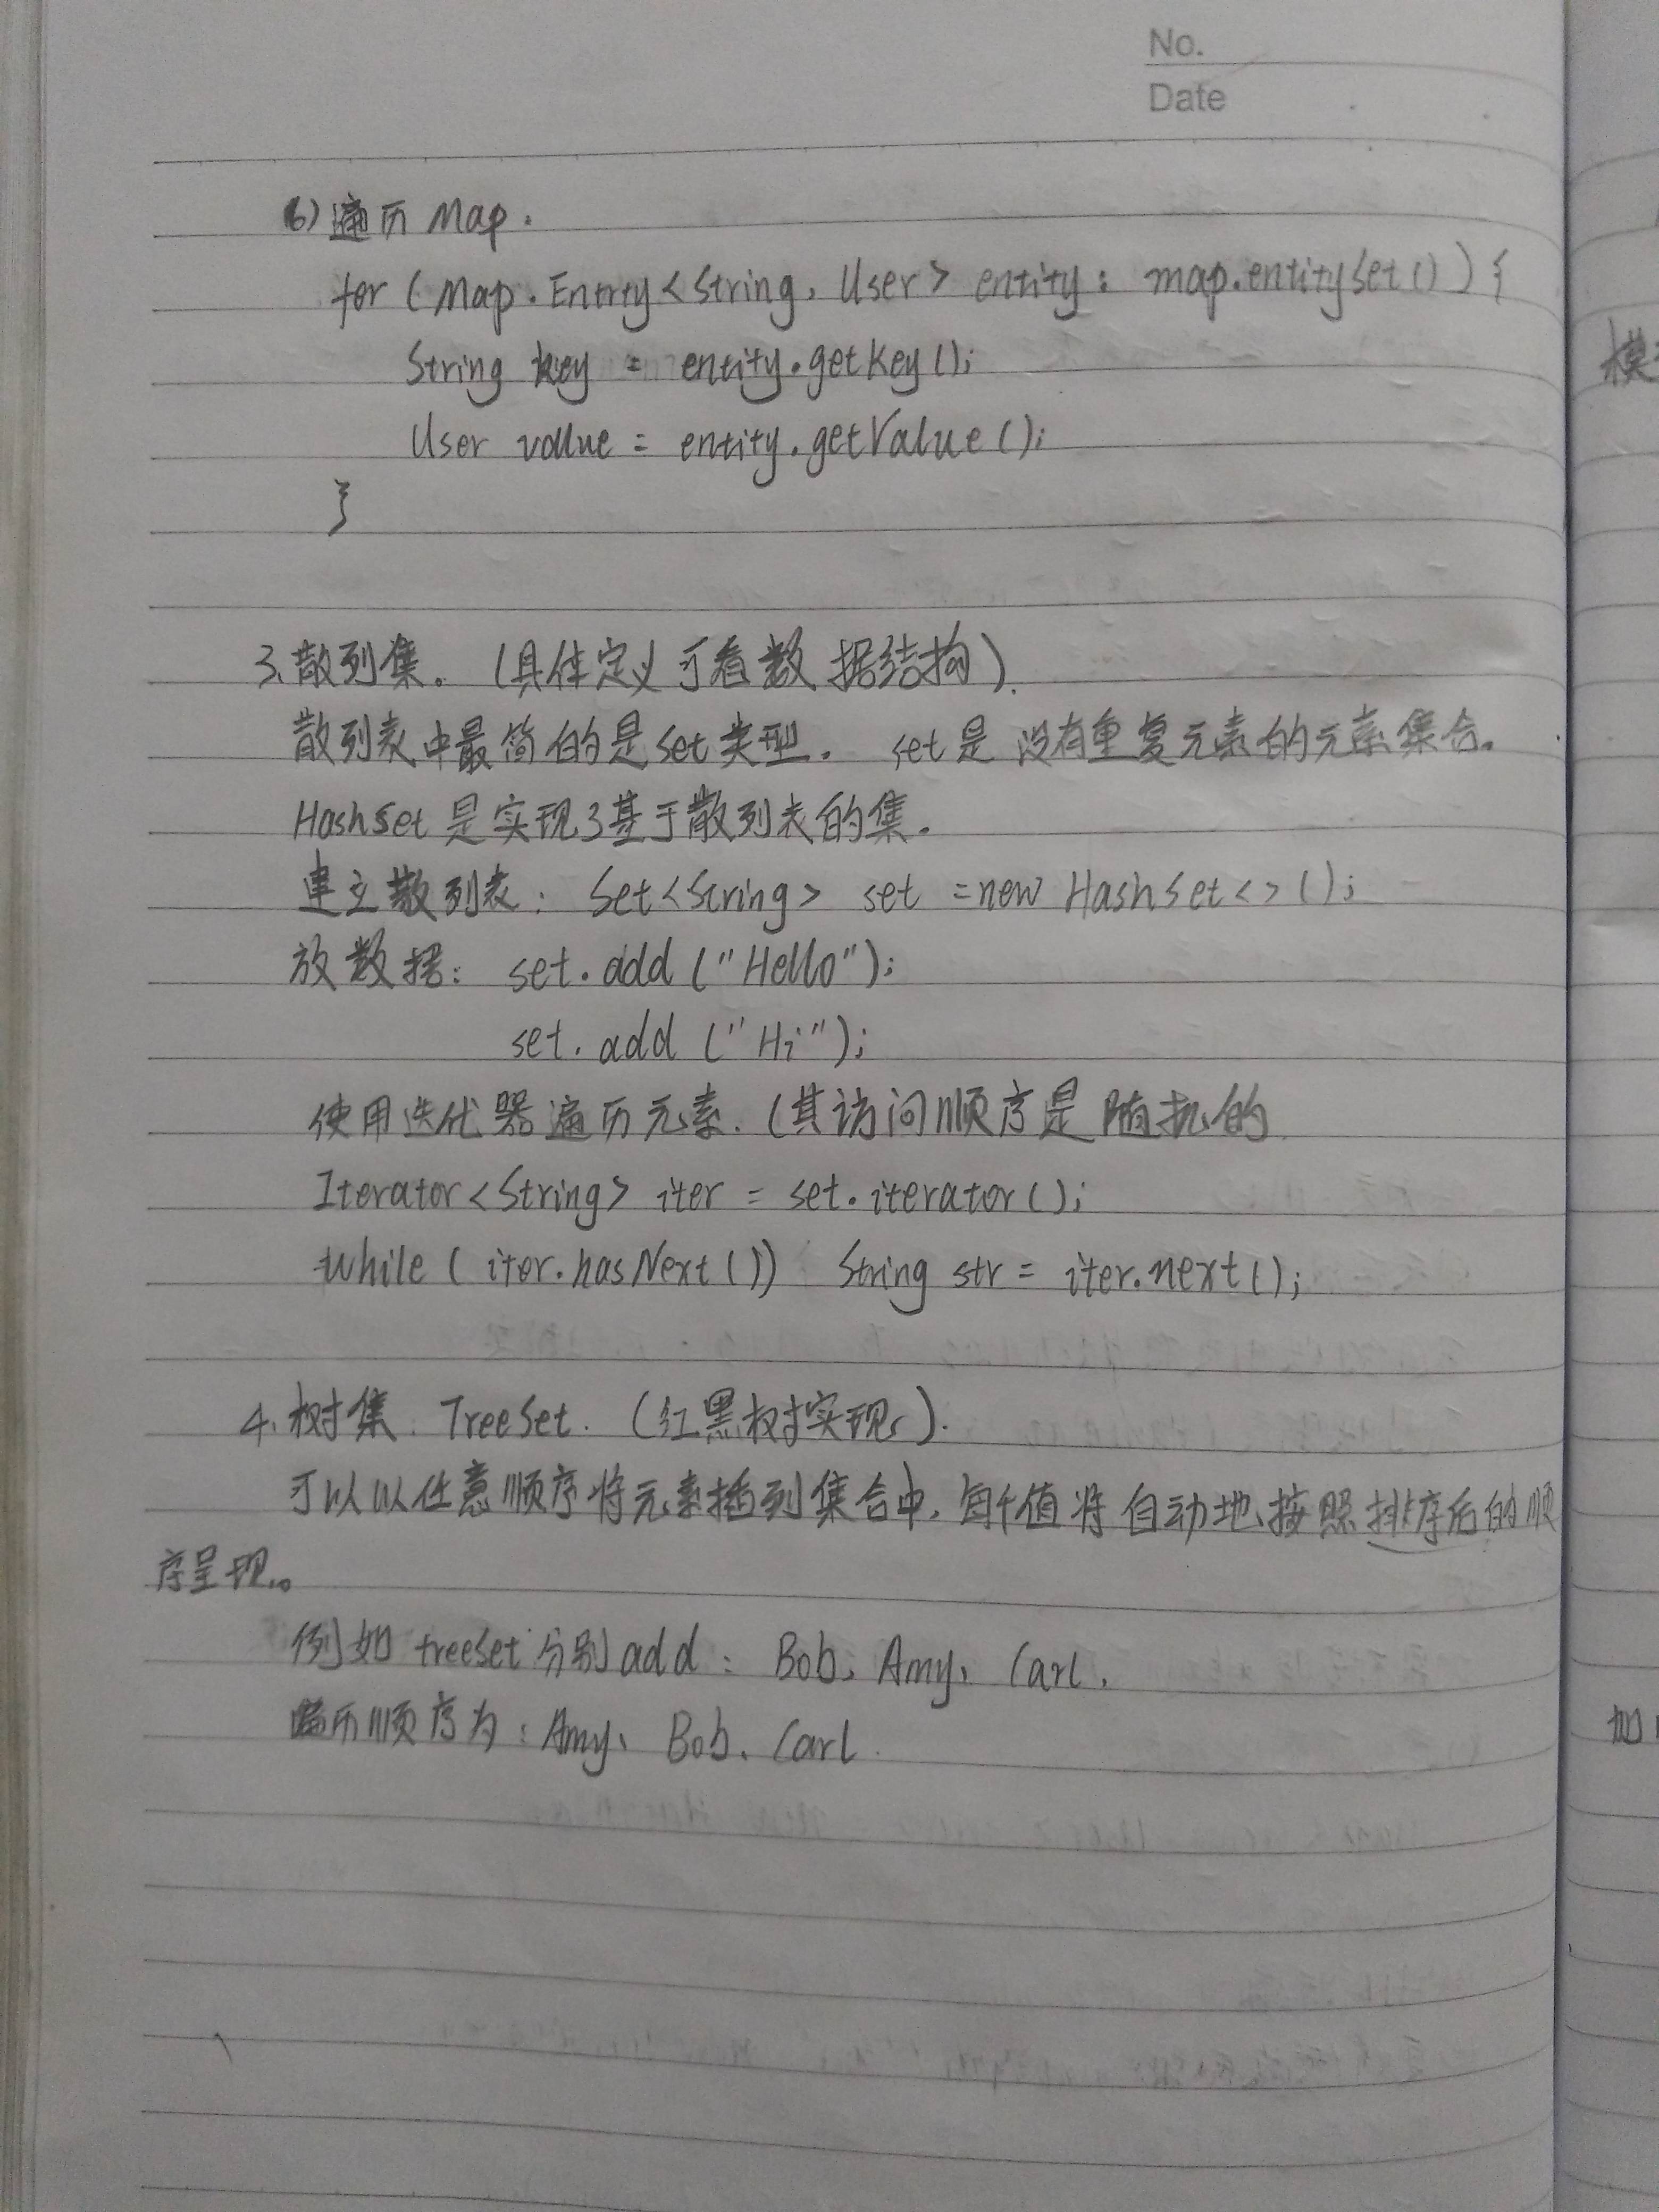 No.
Date
6) 遍历 Map.
for (Map.Entrty<String, User> entity: map.entitySet()) {
String key = entity.getKey();
User value = entity.getValue();
}
3、散列集。(具体定义可看数据结构).
散列表中最简的是set类型. set是没有重复元素的元素集合。
HashSet是实现了基于散列表的集。
建立散列表: Set<String> set =new HashSet<>();
放数据: set.add("Hello");
set.add("Hi");
使用迭代器遍历元素.(其访问顺序是随机的
Iterator<String> iter = set.iterator();
while (iter.hasNext()) String str = iter.next();
4、树集. TreeSet. (红黑树实现).
可以以任意顺序将元素插到集合中,每个值将自动地按照排序后的顺
序呈现。
例如 treeSet 分别 add: Bob、Amy、Carl.
遍历顺序为: Amy、Bob、Carl.
模
加